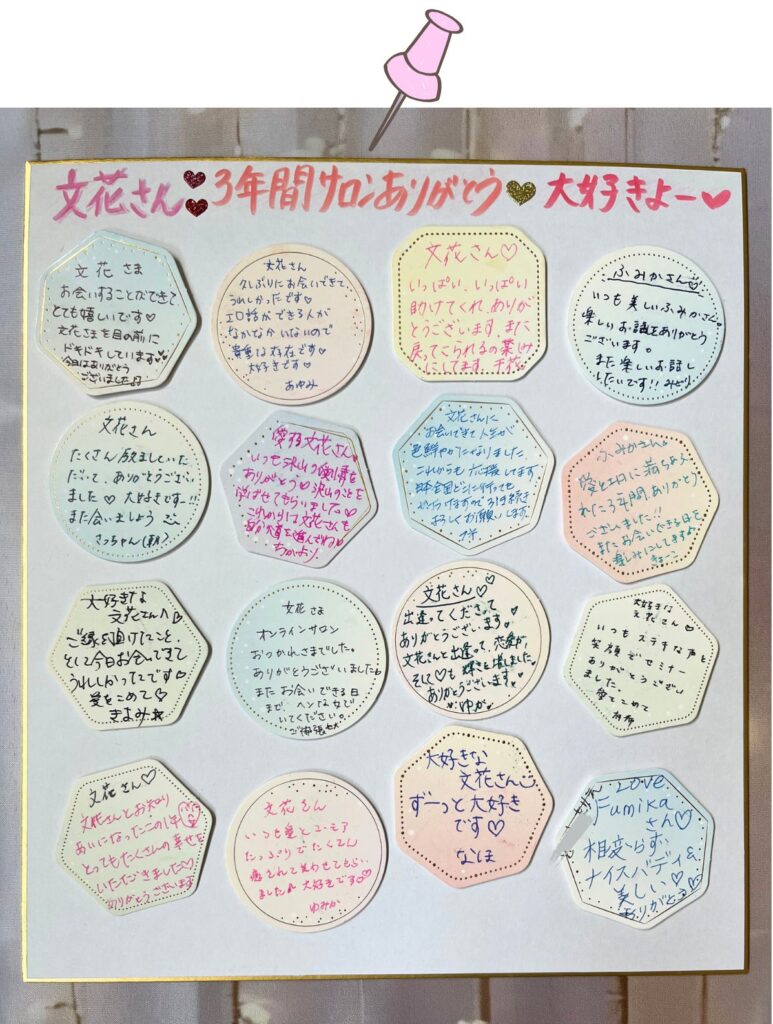 文花さん 3年間サロンありがとう 大好きよー
文花さま
お会いすることができて
とても嬉しいです
文花さまを目の前に
ドキドキしています
今日はありがとう
ございました
文花さん
久しぶりにお会いできて、
うれしかったです♡
エロ話ができる人が
なかなかいないので
貴重な存在です♡
大好きです♡
あゆみ
文花さん♡
いっぱい、いっぱい
助けてくれ、ありが
とうございます。また
戻ってこられるの楽しみ
にしてます。千花
ふみかさん
いつも美しいふみかさん
楽しいお話をありがとう
ございます。
また楽しいお話し
したいです!! みどり
文花さん
たくさん励ましていた
だいて、ありがとうござい
ました♡ 大好きですー!!
また会いましょう
さっちゃん
愛する文花さん
いつも沢山の愛情を
ありがとう♡沢山のことを
学ばせてもらいました♡
これからは文花さんも
ちかより
文花さんに
お会いできて人生が
色鮮やかになりました
これからも応援してます
日本全国どこに行っても
かけつけますので引き続き
よろしくお願いします
ふみかさん
愛とエロに満ちあふ
れた3年間ありがとう
ございました!!
またお会いできる日を
楽しみにしてますよ
大好きな
文花さんへ
ご縁を頂けたこと、
そして今日お会いできて
うれしかったです♡
愛をこめて♡
きよみ
文花さま
オンラインサロン
おつかれさまでした。
ありがとうございました
またお会いできる日
まで、ヘンな女で
いてください。
文花さん♡
出逢ってくださって
ありがとうございます♡
文花さんと出逢って、恋愛が、
そして♡も輝きを増しました。
ありがとうございます。
ゆか
大好きな
文花さん
いつもステキな声と
笑顔でセミナー
ありがとうござい
ました。
愛をこめて
文花さん♡
文花さんとお知り
あいになったこの1年
とってもたくさんの幸せを
いただきました♡
ありがとうございます
文花さん
いつも愛とユーモア
たっぷりでたくさん
癒されて笑わせてもらい
ました 大好きです♡
ゆみか
大好きな
文花さん
ずーっと大好き
です♡
なほ
Love
Fumika
さん♡
相変らず、
ナイスバディ&
美しい♡
ありがとう